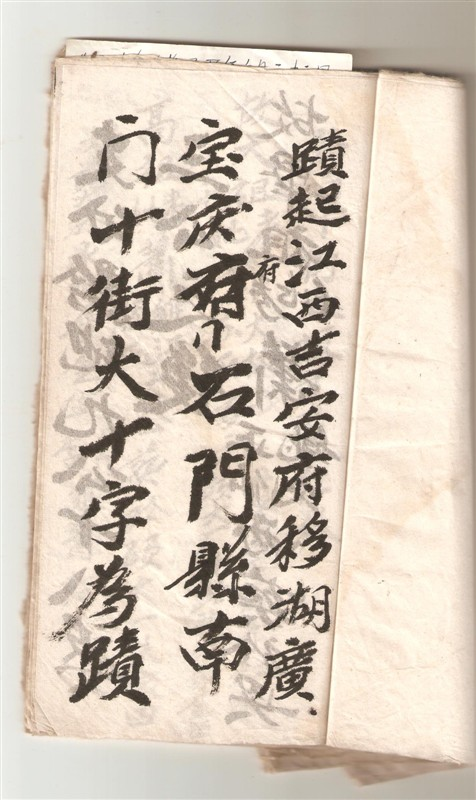 蹟起江西吉安府移湖廣
府
宝庆府石門縣南
门十街大十字為蹟